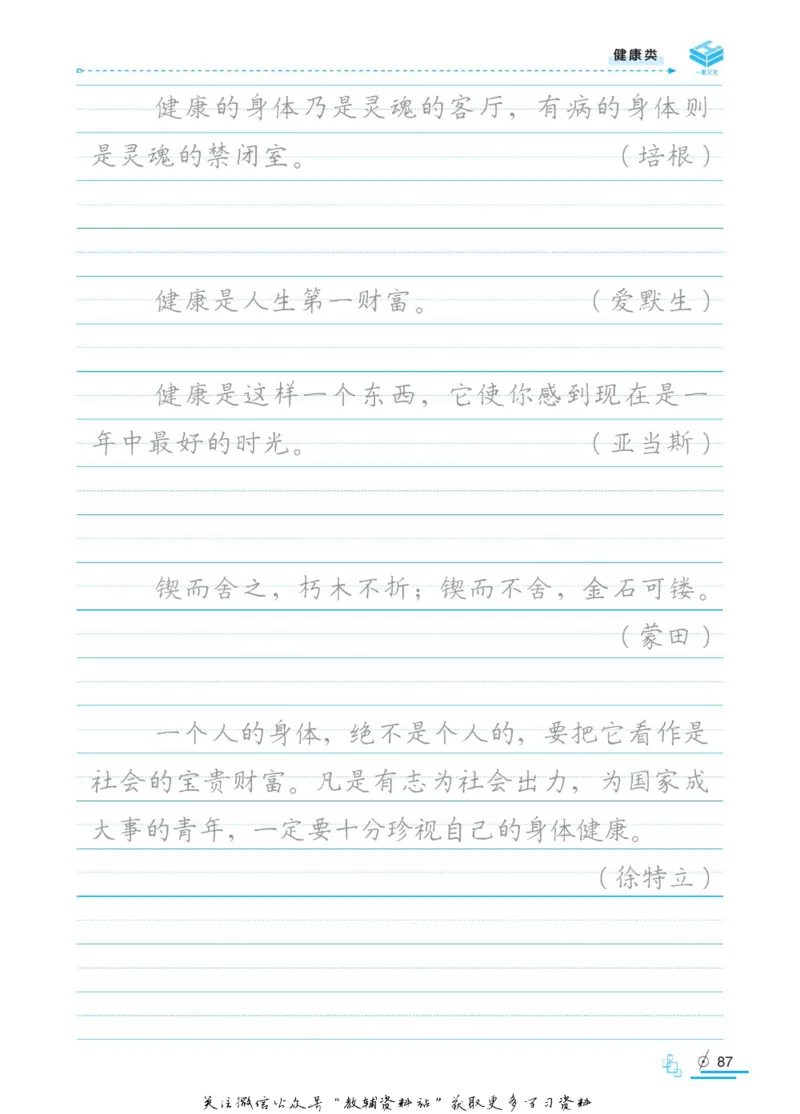 健康类
一鸢文化
健康的身体乃是灵魂的客厅，有病的身体则
是灵魂的禁闭室。（培根）
健康是人生第一财富。（爱默生）
健康是这样一个东西，它使你感到现在是一
年中最好的时光。（亚当斯）
锲而舍之，朽木不折；锲而不舍，金石可镂。
（蒙田）
一个人的身体，绝不是个人的，要把它看作是
社会的宝贵财富。凡是有志为社会出力，为国家成
大事的青年，一定要十分珍视自己的身体健康。
（徐特立）
87
关注微信公众号“教辅资料站”获取更多学习资料